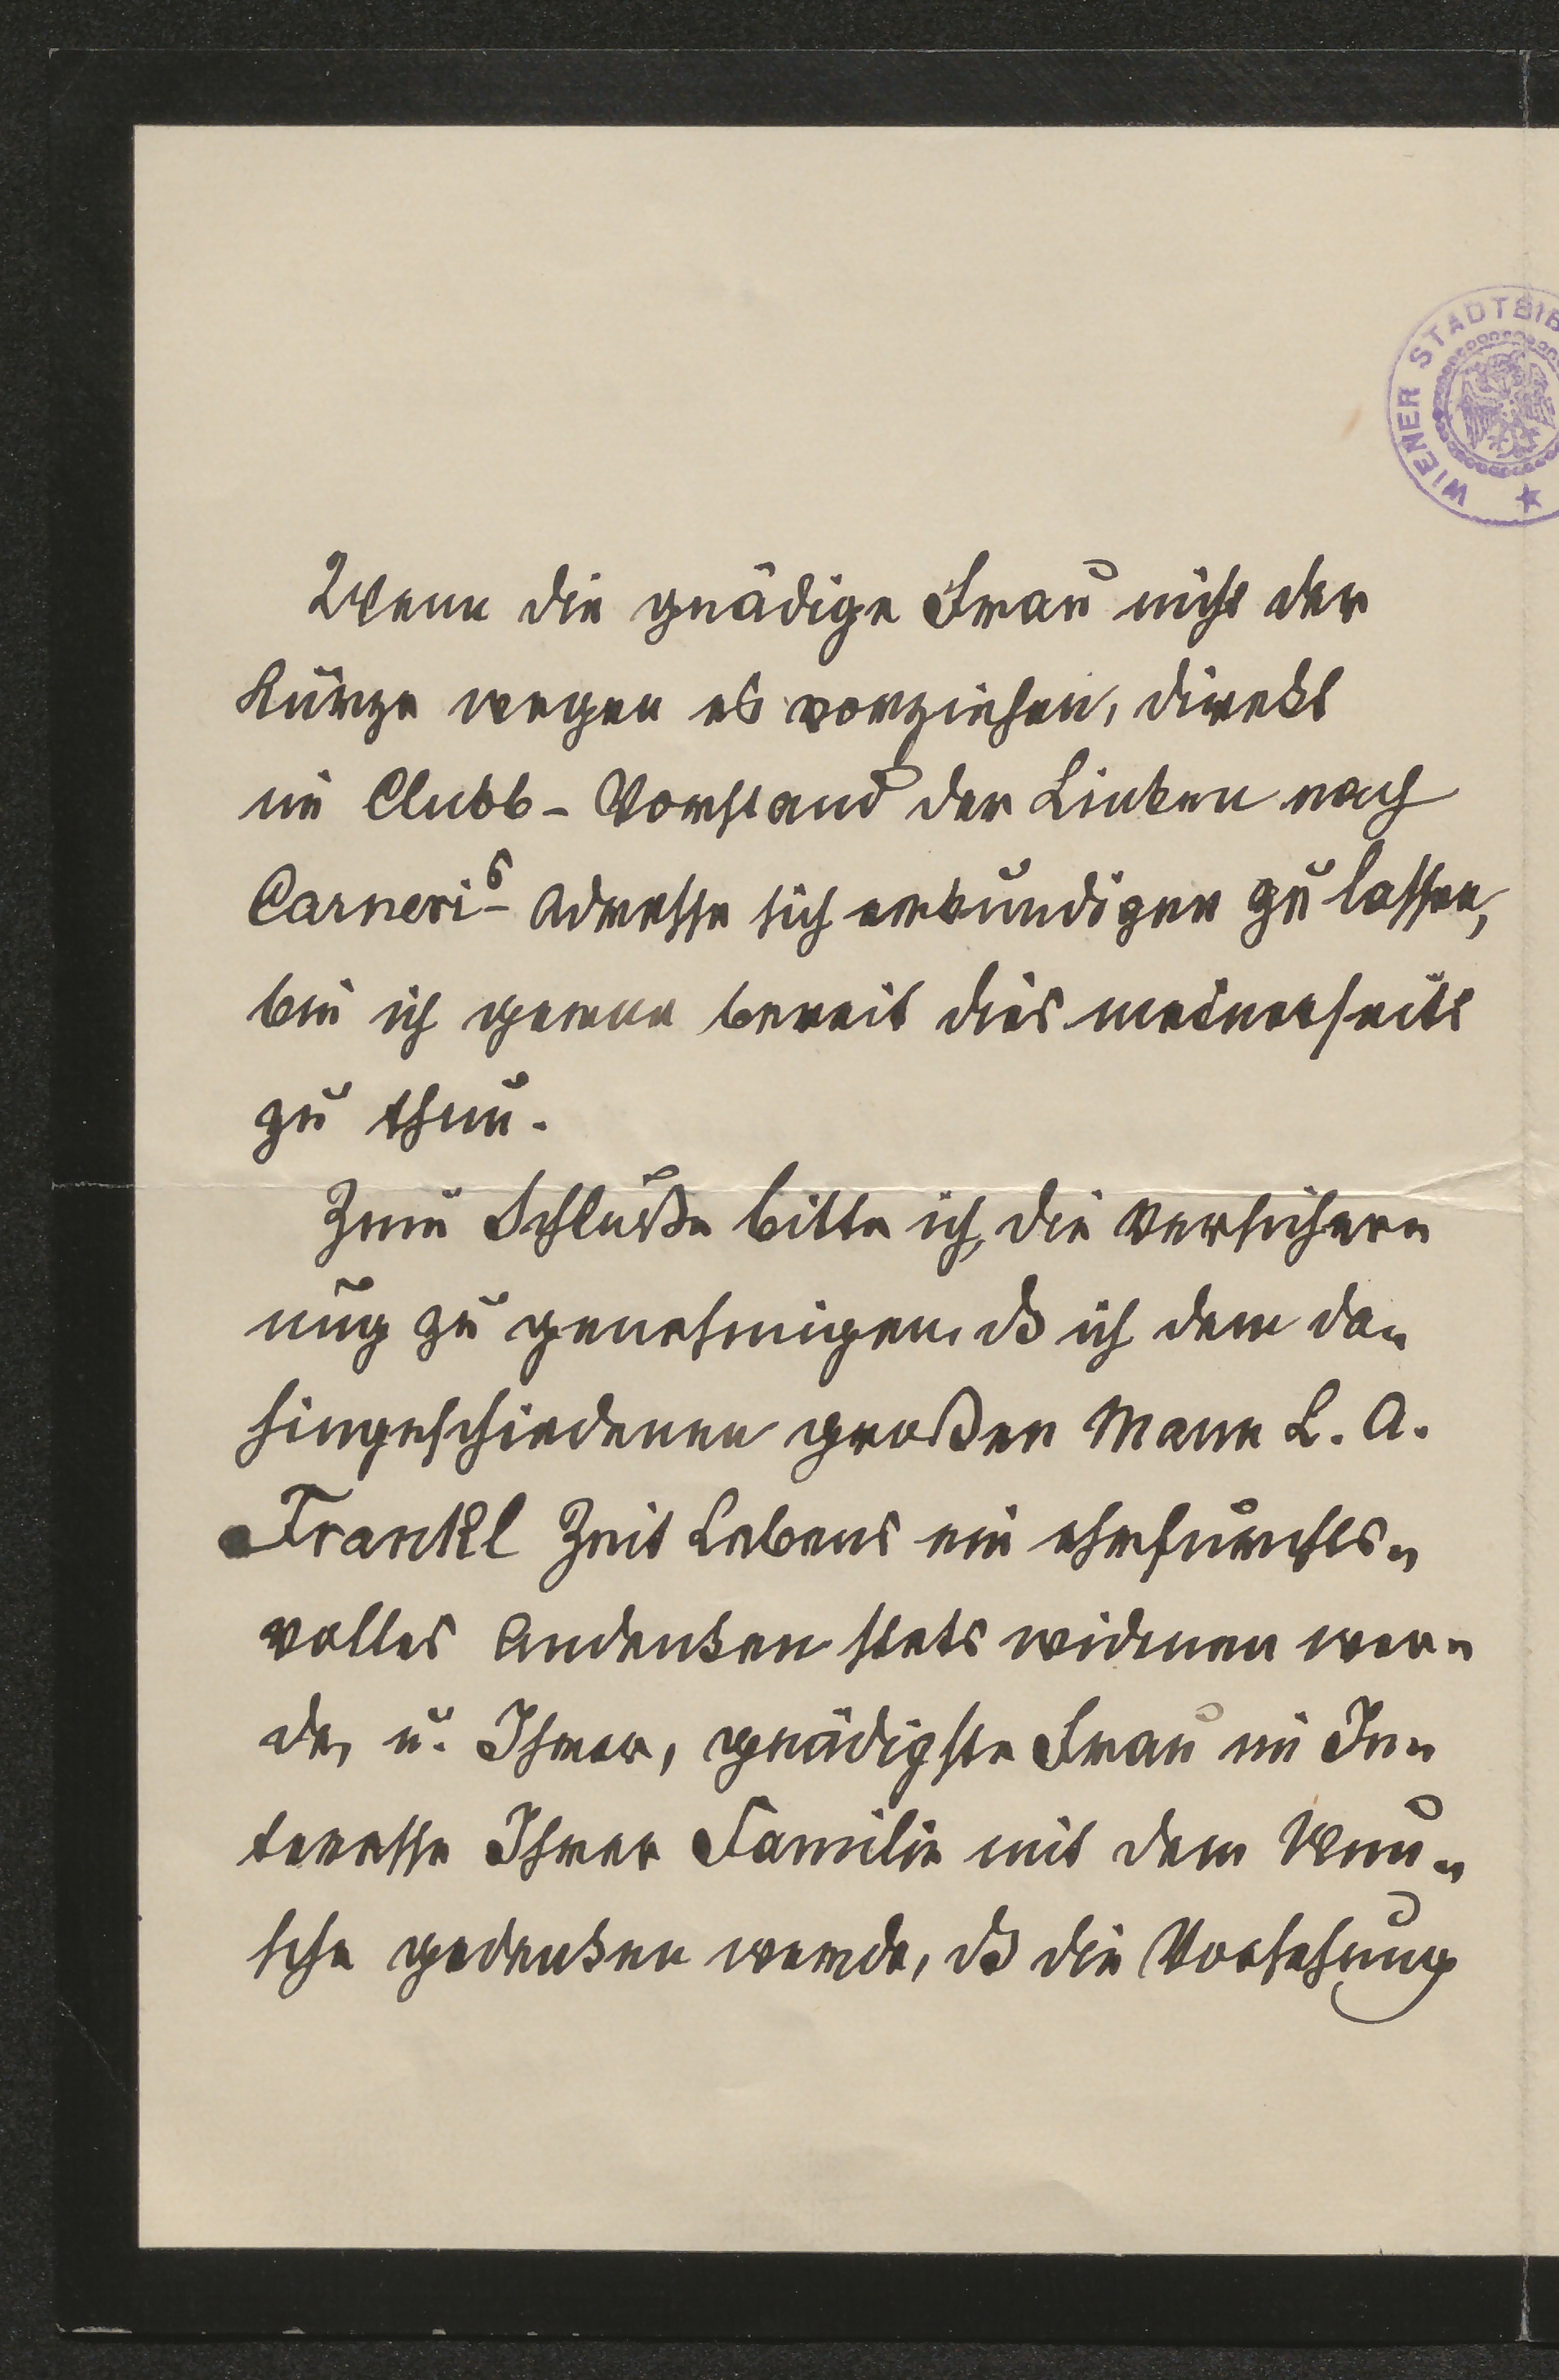 WIENER STADTBIB
Wenn die gnädige Frau nicht der
Kürze wegen es vorziehen, direkt
im Clubb-Vorstand der Linken nach
Carneri's Adresse sich erkundigen zu lassen,
bin ich gerne bereit dies meinerseits
zu thun.
Zum Schluße bitte ich, die Versicher-
ung zu genehmigen, dß ich dem da-
hingeschiedenen großen Mann L. A.
Frankl Zeit Lebens ein ehrfurchts-
volles Andenken stets widmen wer-
de, u. Ihrer, gnädigste Frau im In-
teresse Ihrer Familie mit dem Wun-
sche gedenken werde, dß die Vorsehung